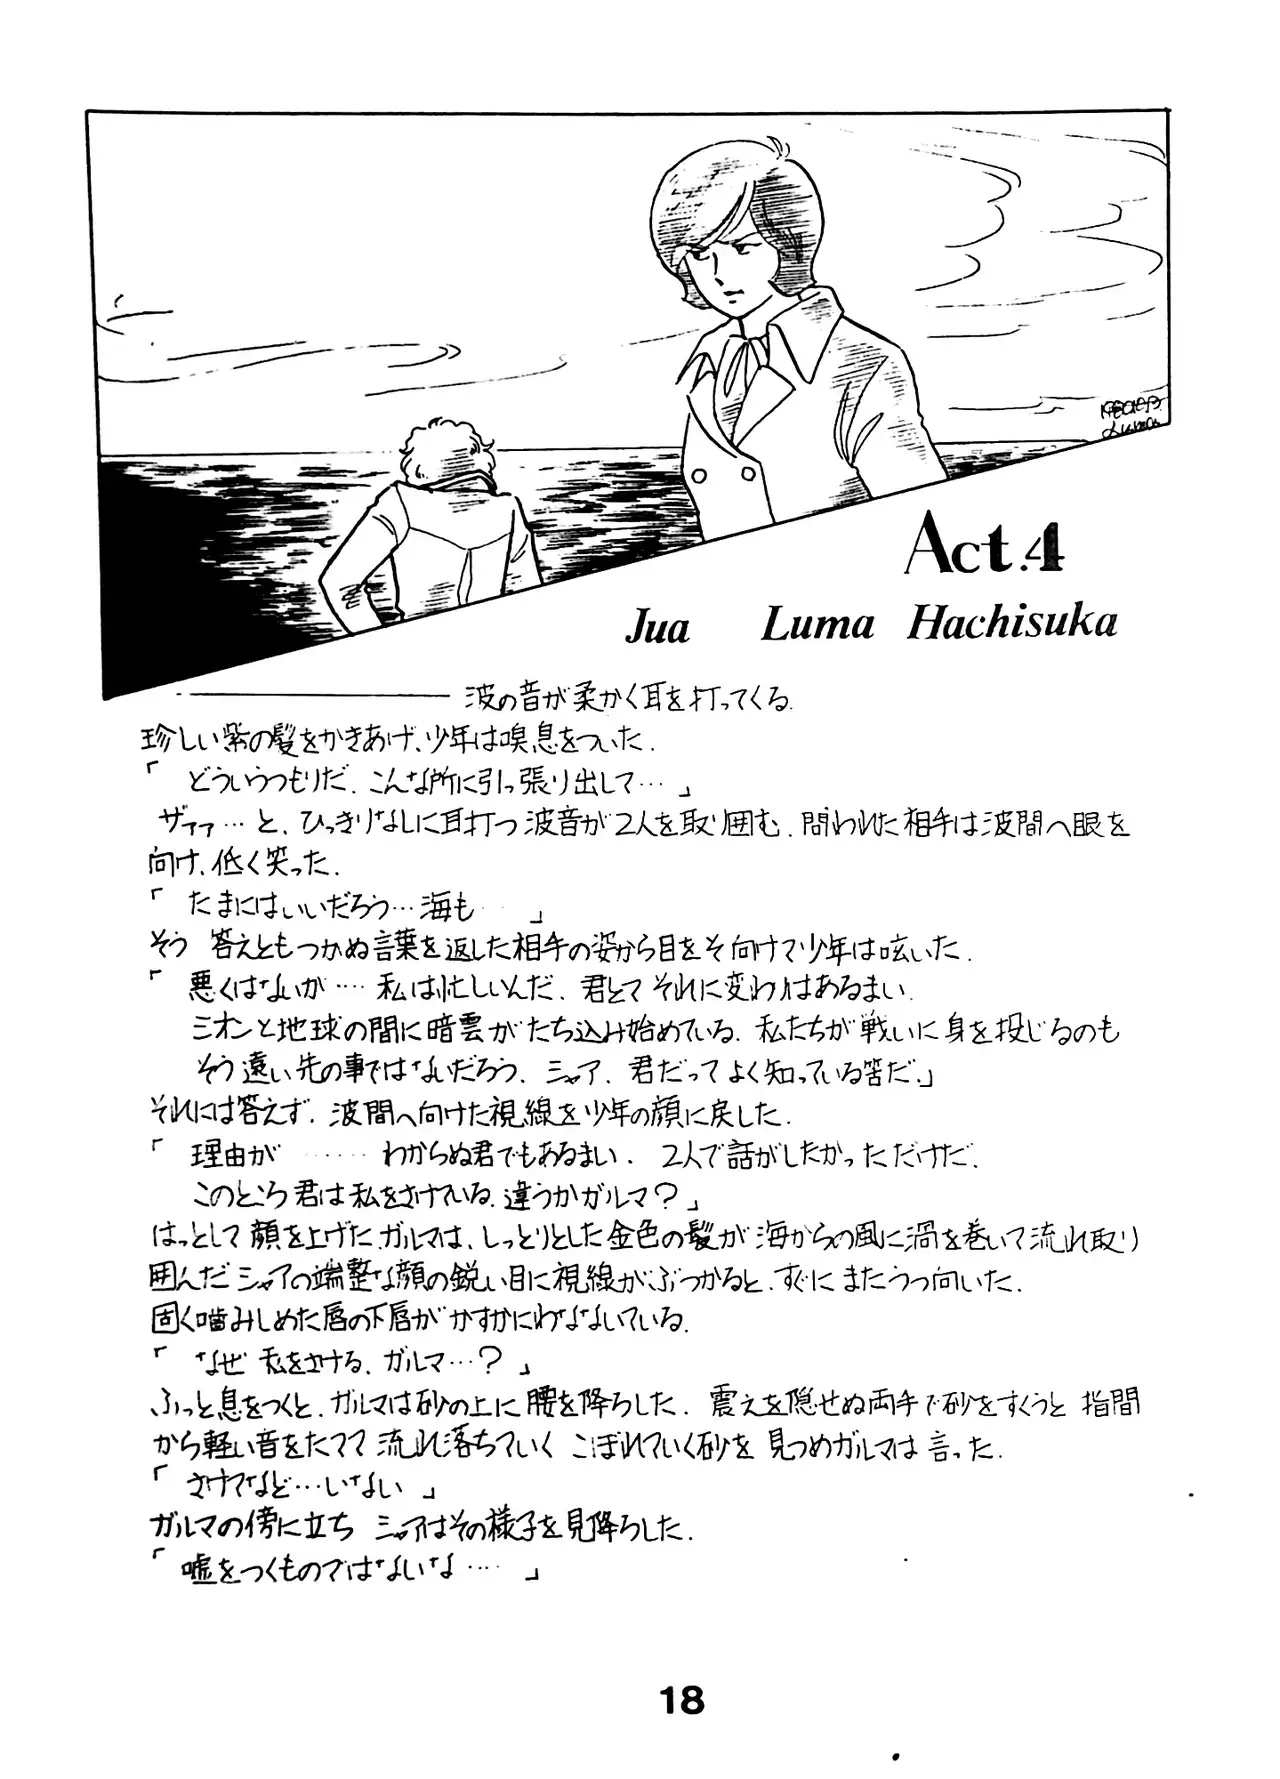 Act.4
Jua Luma Hachisuka
波の音が柔かく耳を打ってくる.
珍しい紫の髪をかきあげ、少年は嘆息をついた.
「 どういうつもりだ. こんな所に引っ張り出して… 」
ザァァ…と、ひっきりなしに耳打つ波音が2人を取り囲む. 問われた相手は波間へ眼を
向け、低く笑った.
「 たまにはいいだろう…海も… 」
そう 答えともつかぬ言葉を返した相手の姿から目をそ向けて少年は呟いた.
「 悪くはないが…… 私は忙しいんだ. 君とて それに変わりはあるまい.
ミオンと地球の間に暗雲がたち込み始めている. 私たちが戦いに身を投じるのも
そう遠い先の事ではないだろう. シャア. 君だって よく知っている筈だ.」
それには答えず. 波間へ向けた視線を少年の顔に戻した.
「 理由が …… わからぬ君でもあるまい. 2人で話がしたかっただけだ.
このところ 君は私をさけている. 違うかガルマ?」
はっとして 顔を上げた.ガルマは、しっとりとした金色の髪が海からの風に渦を巻いて流れ取り
囲んだ シャアの端整な顔の鋭い目に視線がぶつかると、すぐにまたうつ向いた.
固く噛みしめた唇の下唇がかすかにわなないている.
「 なぜ 私をさける. ガルマ…? 」
ふっと息をつくと、ガルマは砂の上に腰を降ろした. 震えを隠せぬ両手で砂をすくうと 指間
から軽い音をたてて 流れ落ちていく こぼれていく砂を 見つめガルマは言った.
「 さけてなど…いない 」
ガルマの傍に立ち シャアはその様子を見降ろした.
「 嘘をつくものではないな…… 」
18